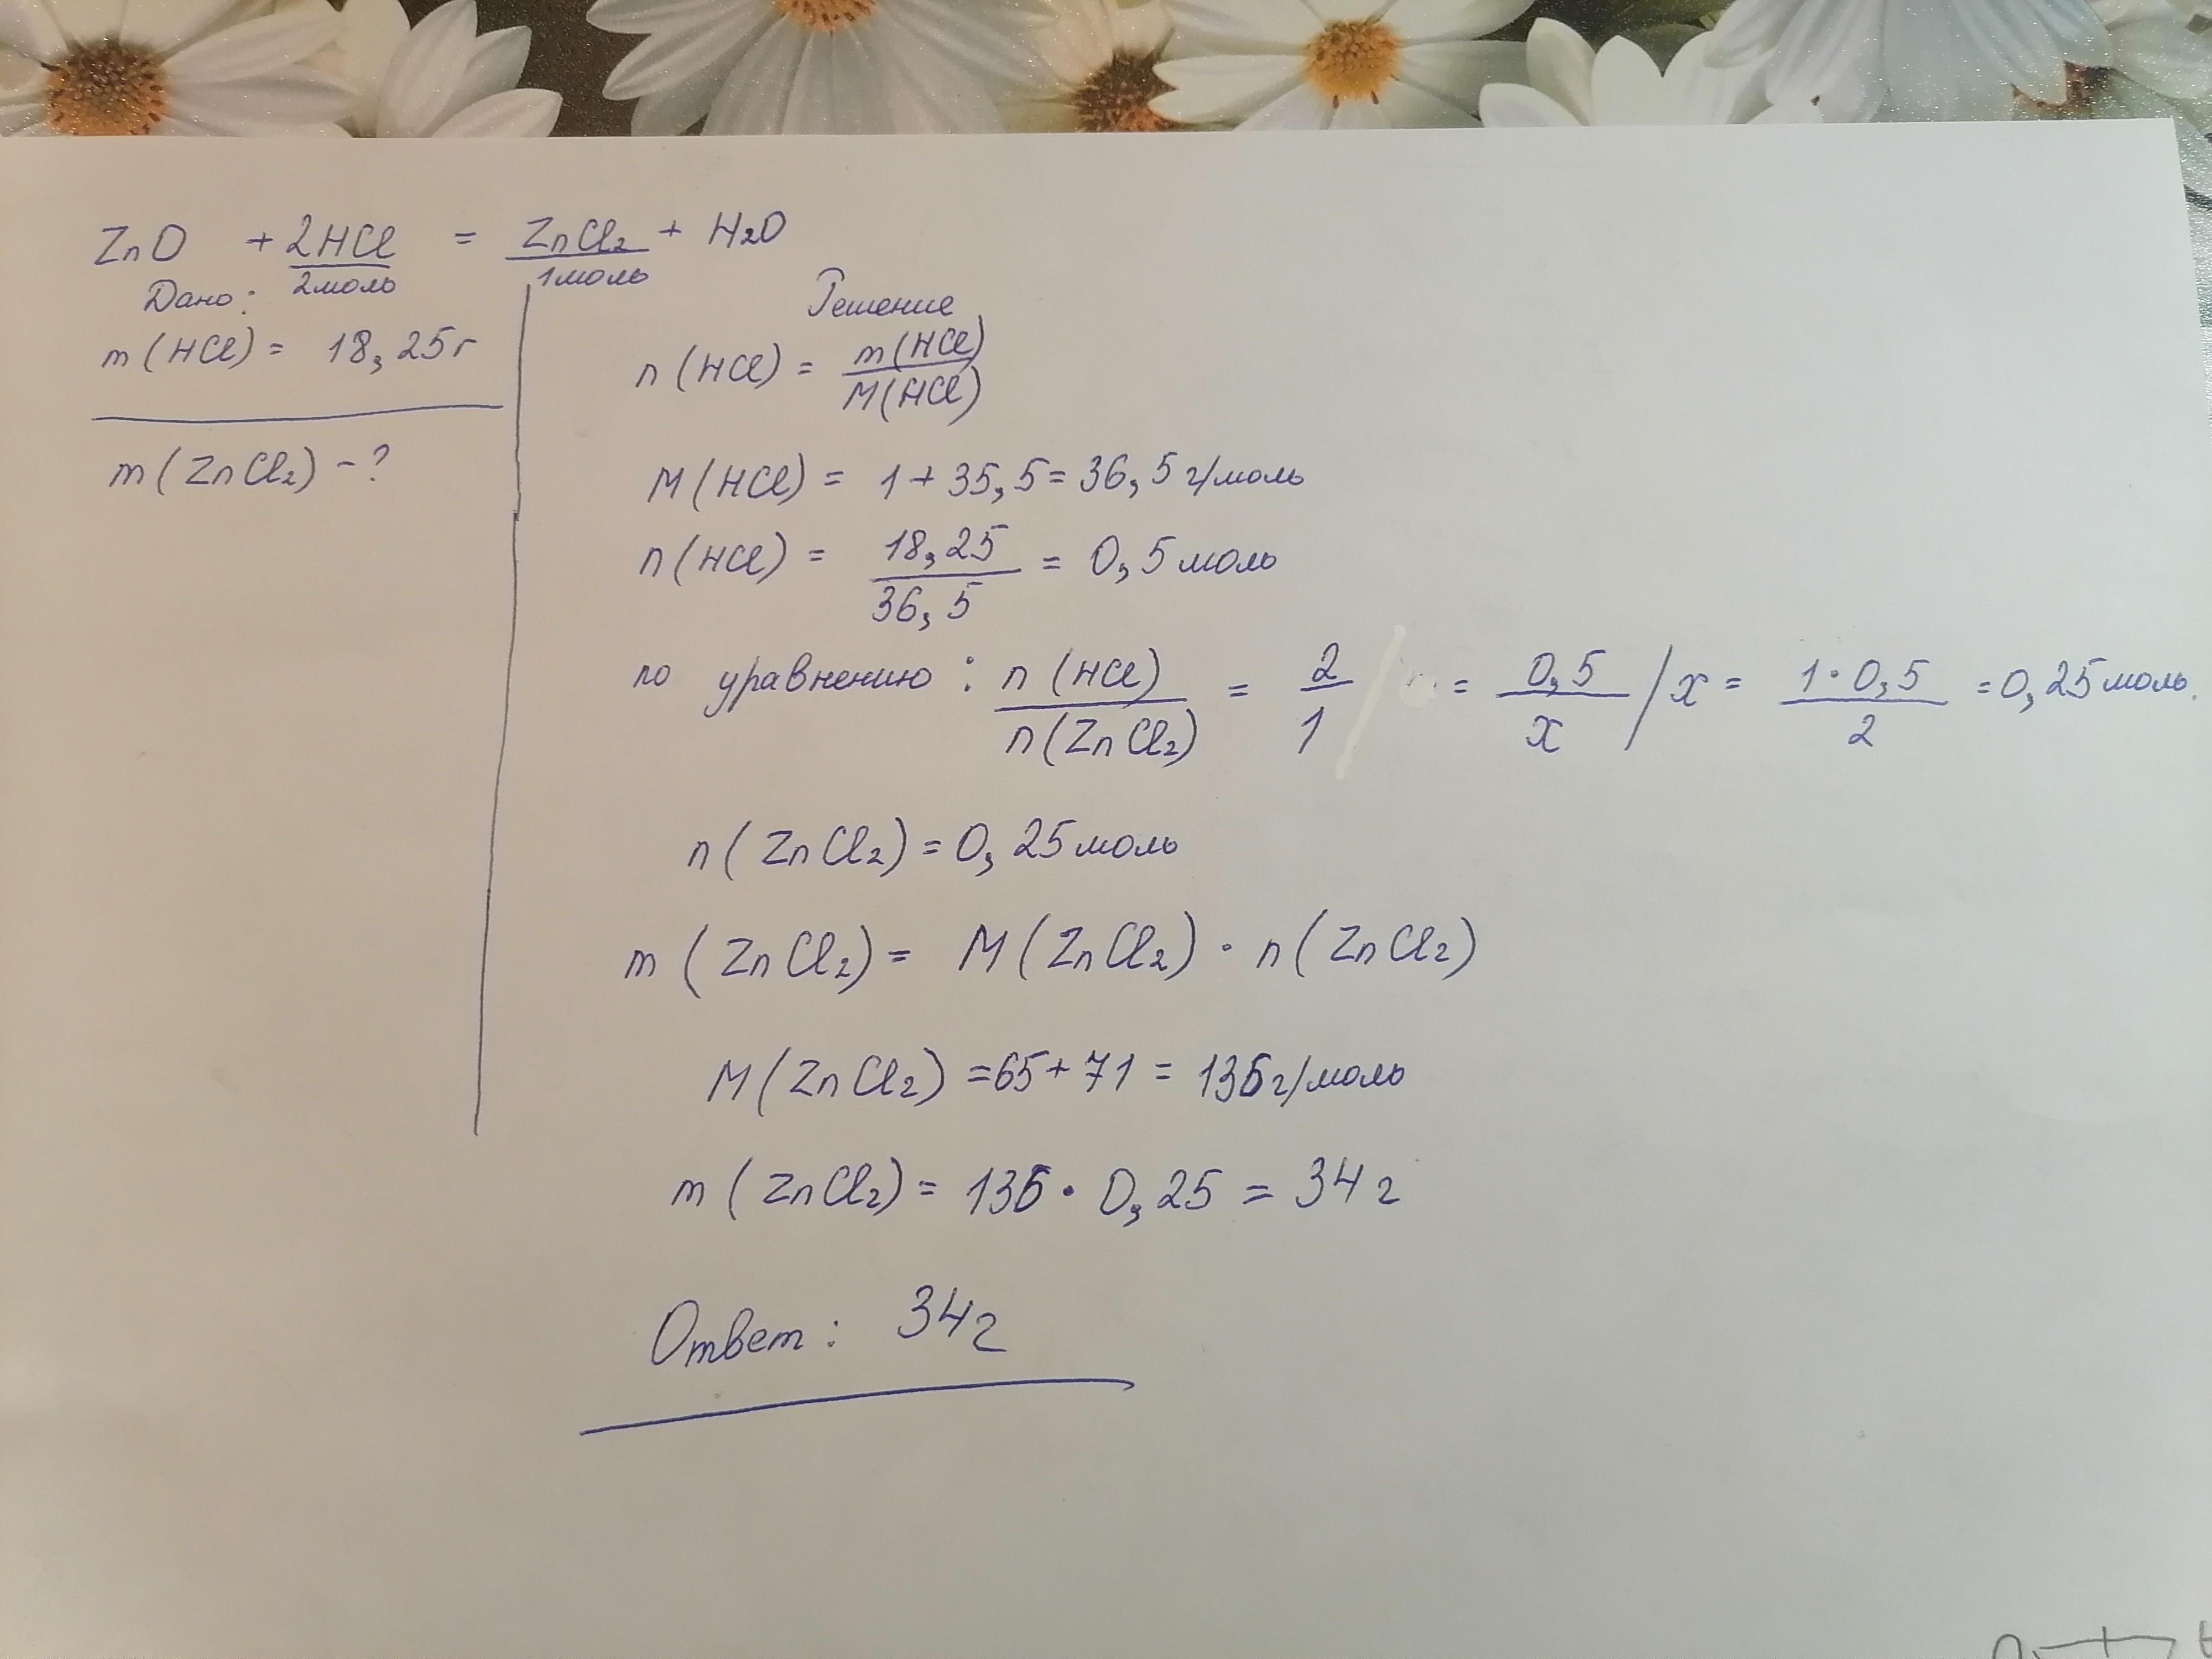 ZnO + 2HCl = ZnCl₂ + H₂O
2моль 1моль
Дано:
m (HCl) = 18,25г
m (ZnCl₂) - ?
Решение
n (HCl) = m(HCl) / M(HCl)
M (HCl) = 1 + 35,5 = 36,5 г/моль
n (HCl) = 18,25 / 36,5 = 0,5 моль
по уравнению: n (HCl) / n (ZnCl₂) = 2 / 1 = 0,5 / x / x = 1 · 0,5 / 2 = 0,25 моль.
n (ZnCl₂) = 0,25 моль
m (ZnCl₂) = M (ZnCl₂) · n (ZnCl₂)
M (ZnCl₂) = 65 + 71 = 136 г/моль
m (ZnCl₂) = 136 · 0,25 = 34 г
Ответ: 34г